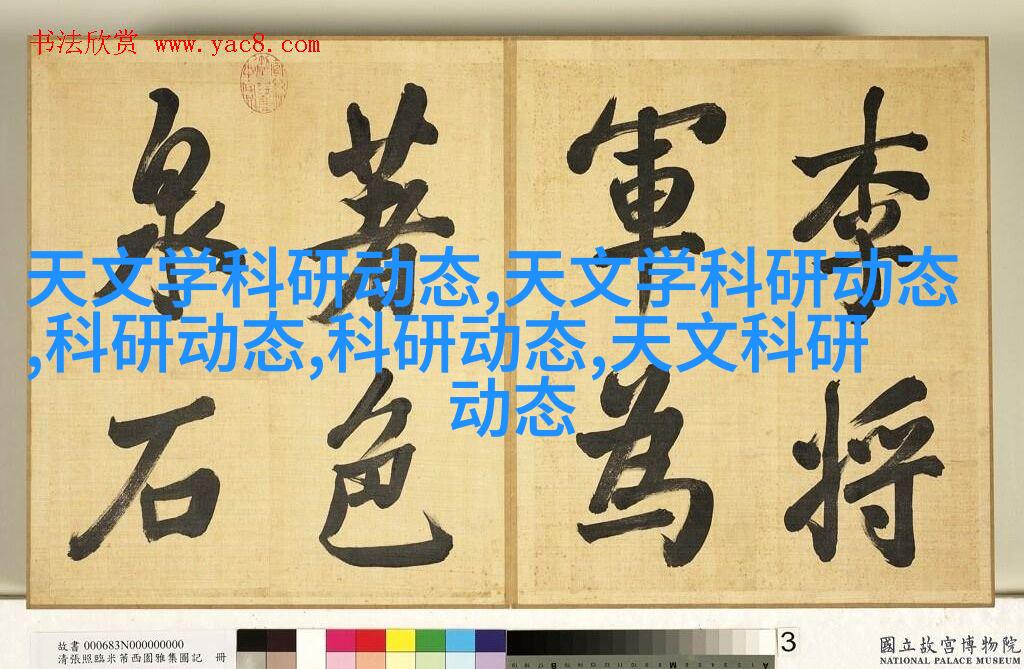 书法欣赏 www.yac8.com
李将
軍為
著色
泉石
天文学科研动态,天文学科研动态
,科研动态,科研动态,天文科研
动态
故書 000683N000000000
清張照臨米芾西園雅集圖記 冊
3
國立故宮博物院
NATIONAL PALACE MUSEUM